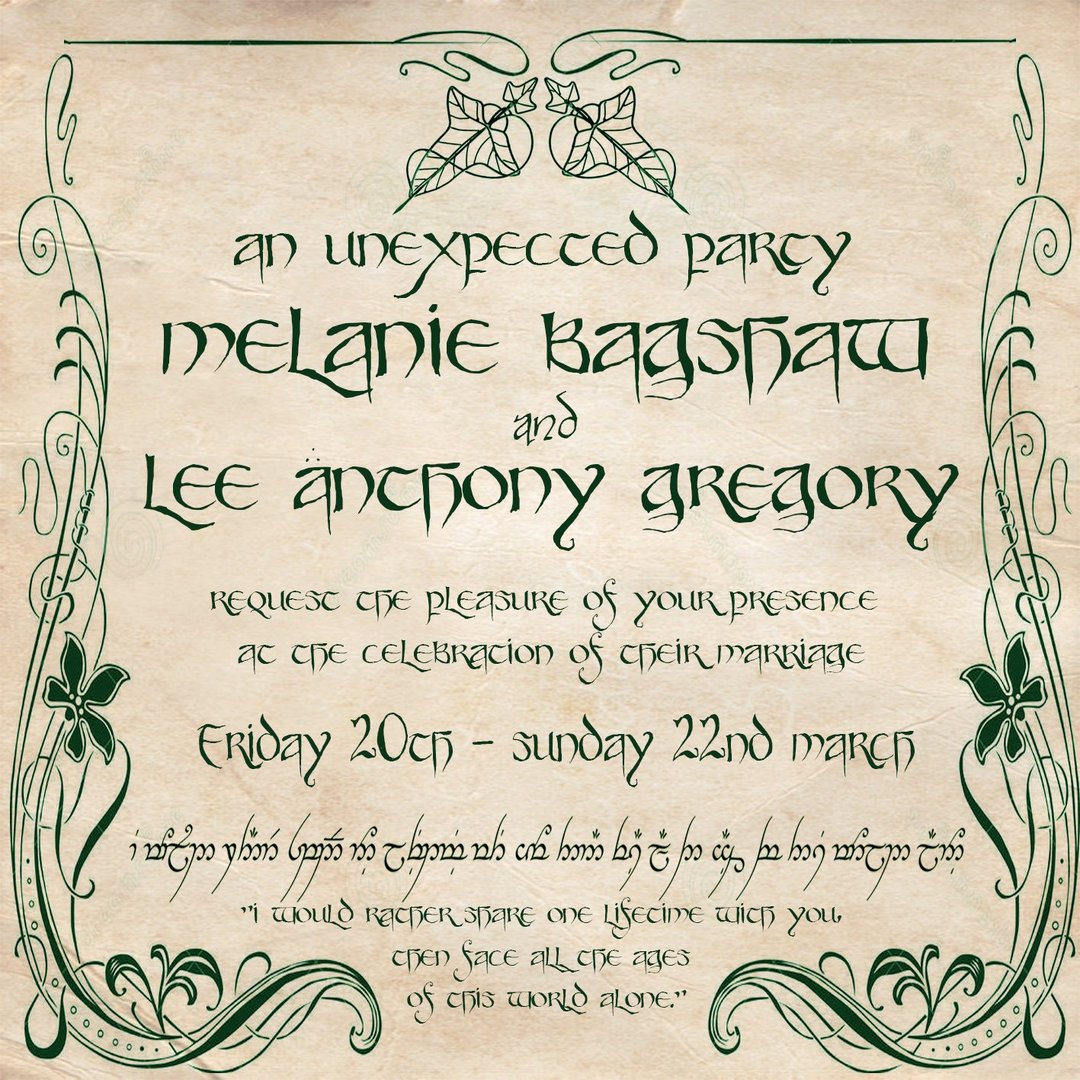 an unexpected party
Melanie Bagshaw
and
Lee Anthony Gregory
request the pleasure of your presence
at the celebration of their marriage
Friday 20th - Sunday 22nd March
"I would rather share one lifetime with you,
then face all the ages
of this world alone."